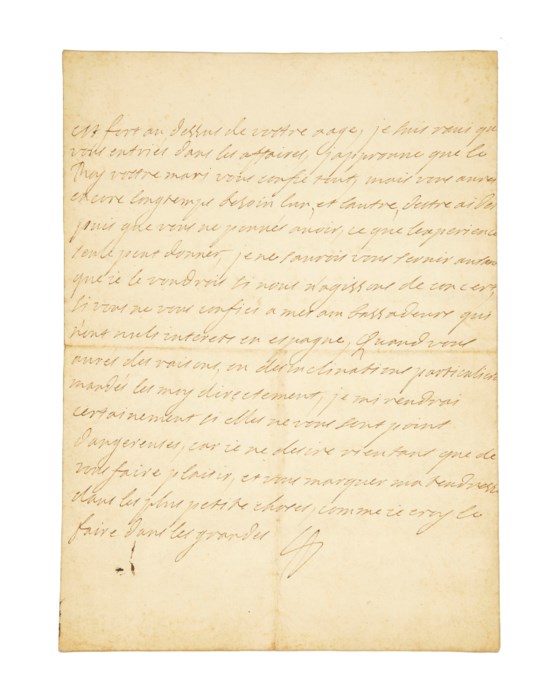 est fort au dessus de vostre aage, je suis ravis que
vous entriés dans les affaires, japprouve que le
Roy vostre mari vous confie tout, mais vous aurés
encore longtemps besoin lun, et lautre, destre aidés
puis que vous ne pouvés avoir, ce que lexperience
seule peut donner, je ne saurois vous servir autant
que ie le voudrois si nous n'agissons de concert,
si vous ne vous confiés a mes ambassadeurs qui
n'ont nuls interets en espagne, Quand vous
aures des raisons, ou des inclinations particulieres
mandés les moy directement, je mi rendrai
certainement si elles ne vous sont point
dangereuses, car ie ne desire rien tant que de
vous faire plaisir, et vous marquer ma tendresse
dans les plus petite choses, comme ie croy le
faire dans les grandes